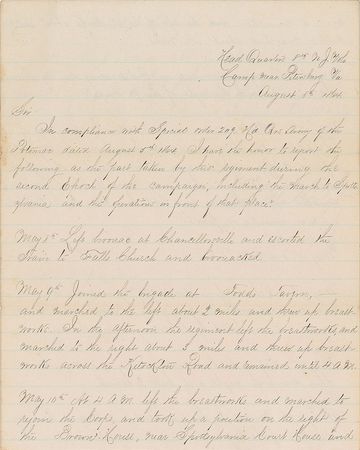 Head Quarters 8th N.J. Vols
Camp near Petersburg Va
August 8th 1864
Sir
In compliance with Special order 209 Hd Qrs Army of the
Potomac dated August 5th 1864, I have the honor to report the
following as the part taken by this regiment during the
second Epoch of the campaign, including the March to Spott
sylvania and the operations in front of that place.
May 8th Left bivouac at Chancellorsville and escorted the
train to Church and bivouacked
May 9th Joined the brigade at Todds Tavern,
and marched to the left about 2 miles and threw up breast
works. In the afternoon the regiment left the breastworks and
marched to the right about 3 miles and threw up breast-
works across the Road and remained until 4 A.M.
May 10th At 4 A.M. left the breastworks and marched to
rejoin the Corps, and took up a position on the right of
the Brown House, near Spottsylvania Court House and